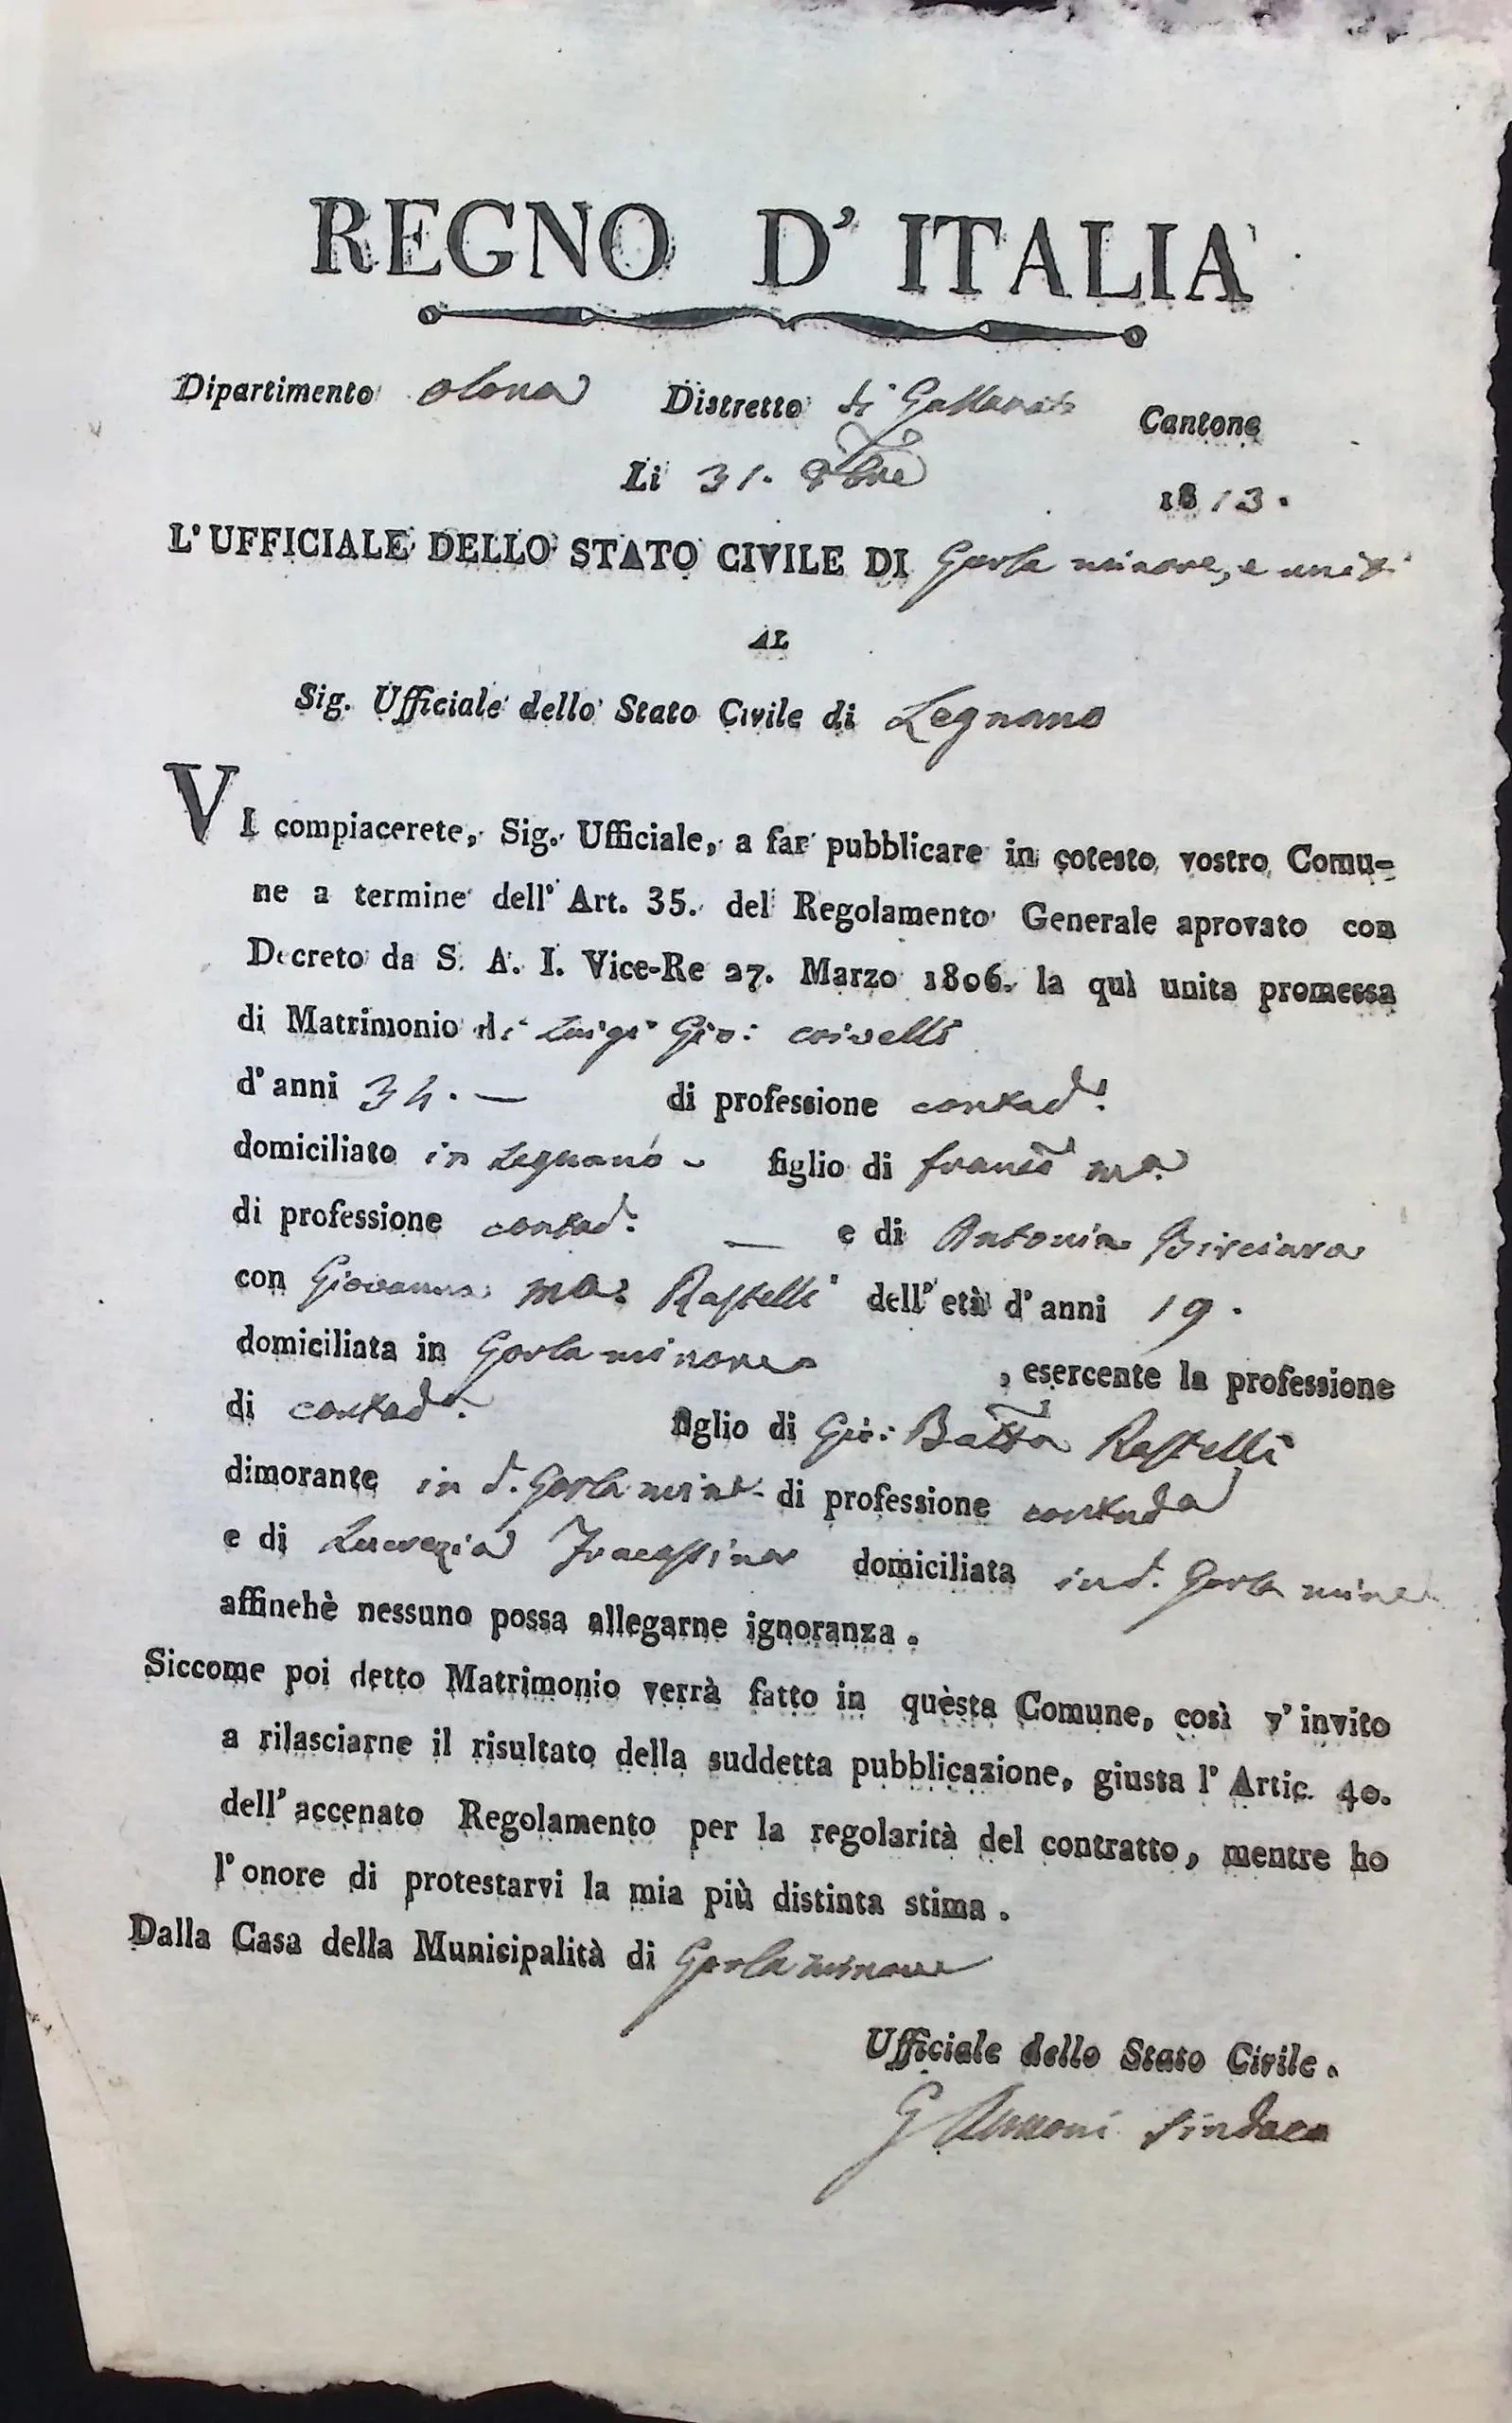 REGNO D' ITALIA
Dipartimento olona Distretto di Gallarate Cantone
Li 31. 8bre 1813.
L' UFFICIALE DELLO STATO CIVILE DI Gorla minore, e uniti
AL
Sig. Ufficiale dello Stato Civile di Legnano
VI compiacerete, Sig. Ufficiale, a far pubblicare in cotesto vostro Comu-
ne a termine dell' Art. 35. del Regolamento Generale aprovato con
Decreto da S. A. I. Vice-Re 27. Marzo 1806. la quì unita promessa
di Matrimonio di Luigi Gio: crivelli
d' anni 34. — di professione contad.
domiciliato in Legnano - figlio di franco ma.
di professione contad: — e di Antonia
con Giovanna ma: Rastelli dell' età d' anni 19.
domiciliata in Gorla minore , esercente la professione
di contada. figlio di Gio: Batta Rastelli
dimorante in d. Gorla mine di professione contada
e di Lucrezia domiciliata in d. Gorla mine
affinchè nessuno possa allegarne ignoranza.
Siccome poi detto Matrimonio verrà fatto in quèsta Comune, così v' invito
a rilasciarne il risultato della suddetta pubblicazione, giusta l' Artic. 40.
dell' accenato Regolamento per la regolarità del contratto, mentre ho
l' onore di protestarvi la mia più distinta stima.
Dalla Casa della Municipalità di Gorla minore
Ufficiale dello Stato Civile.
Sindaco